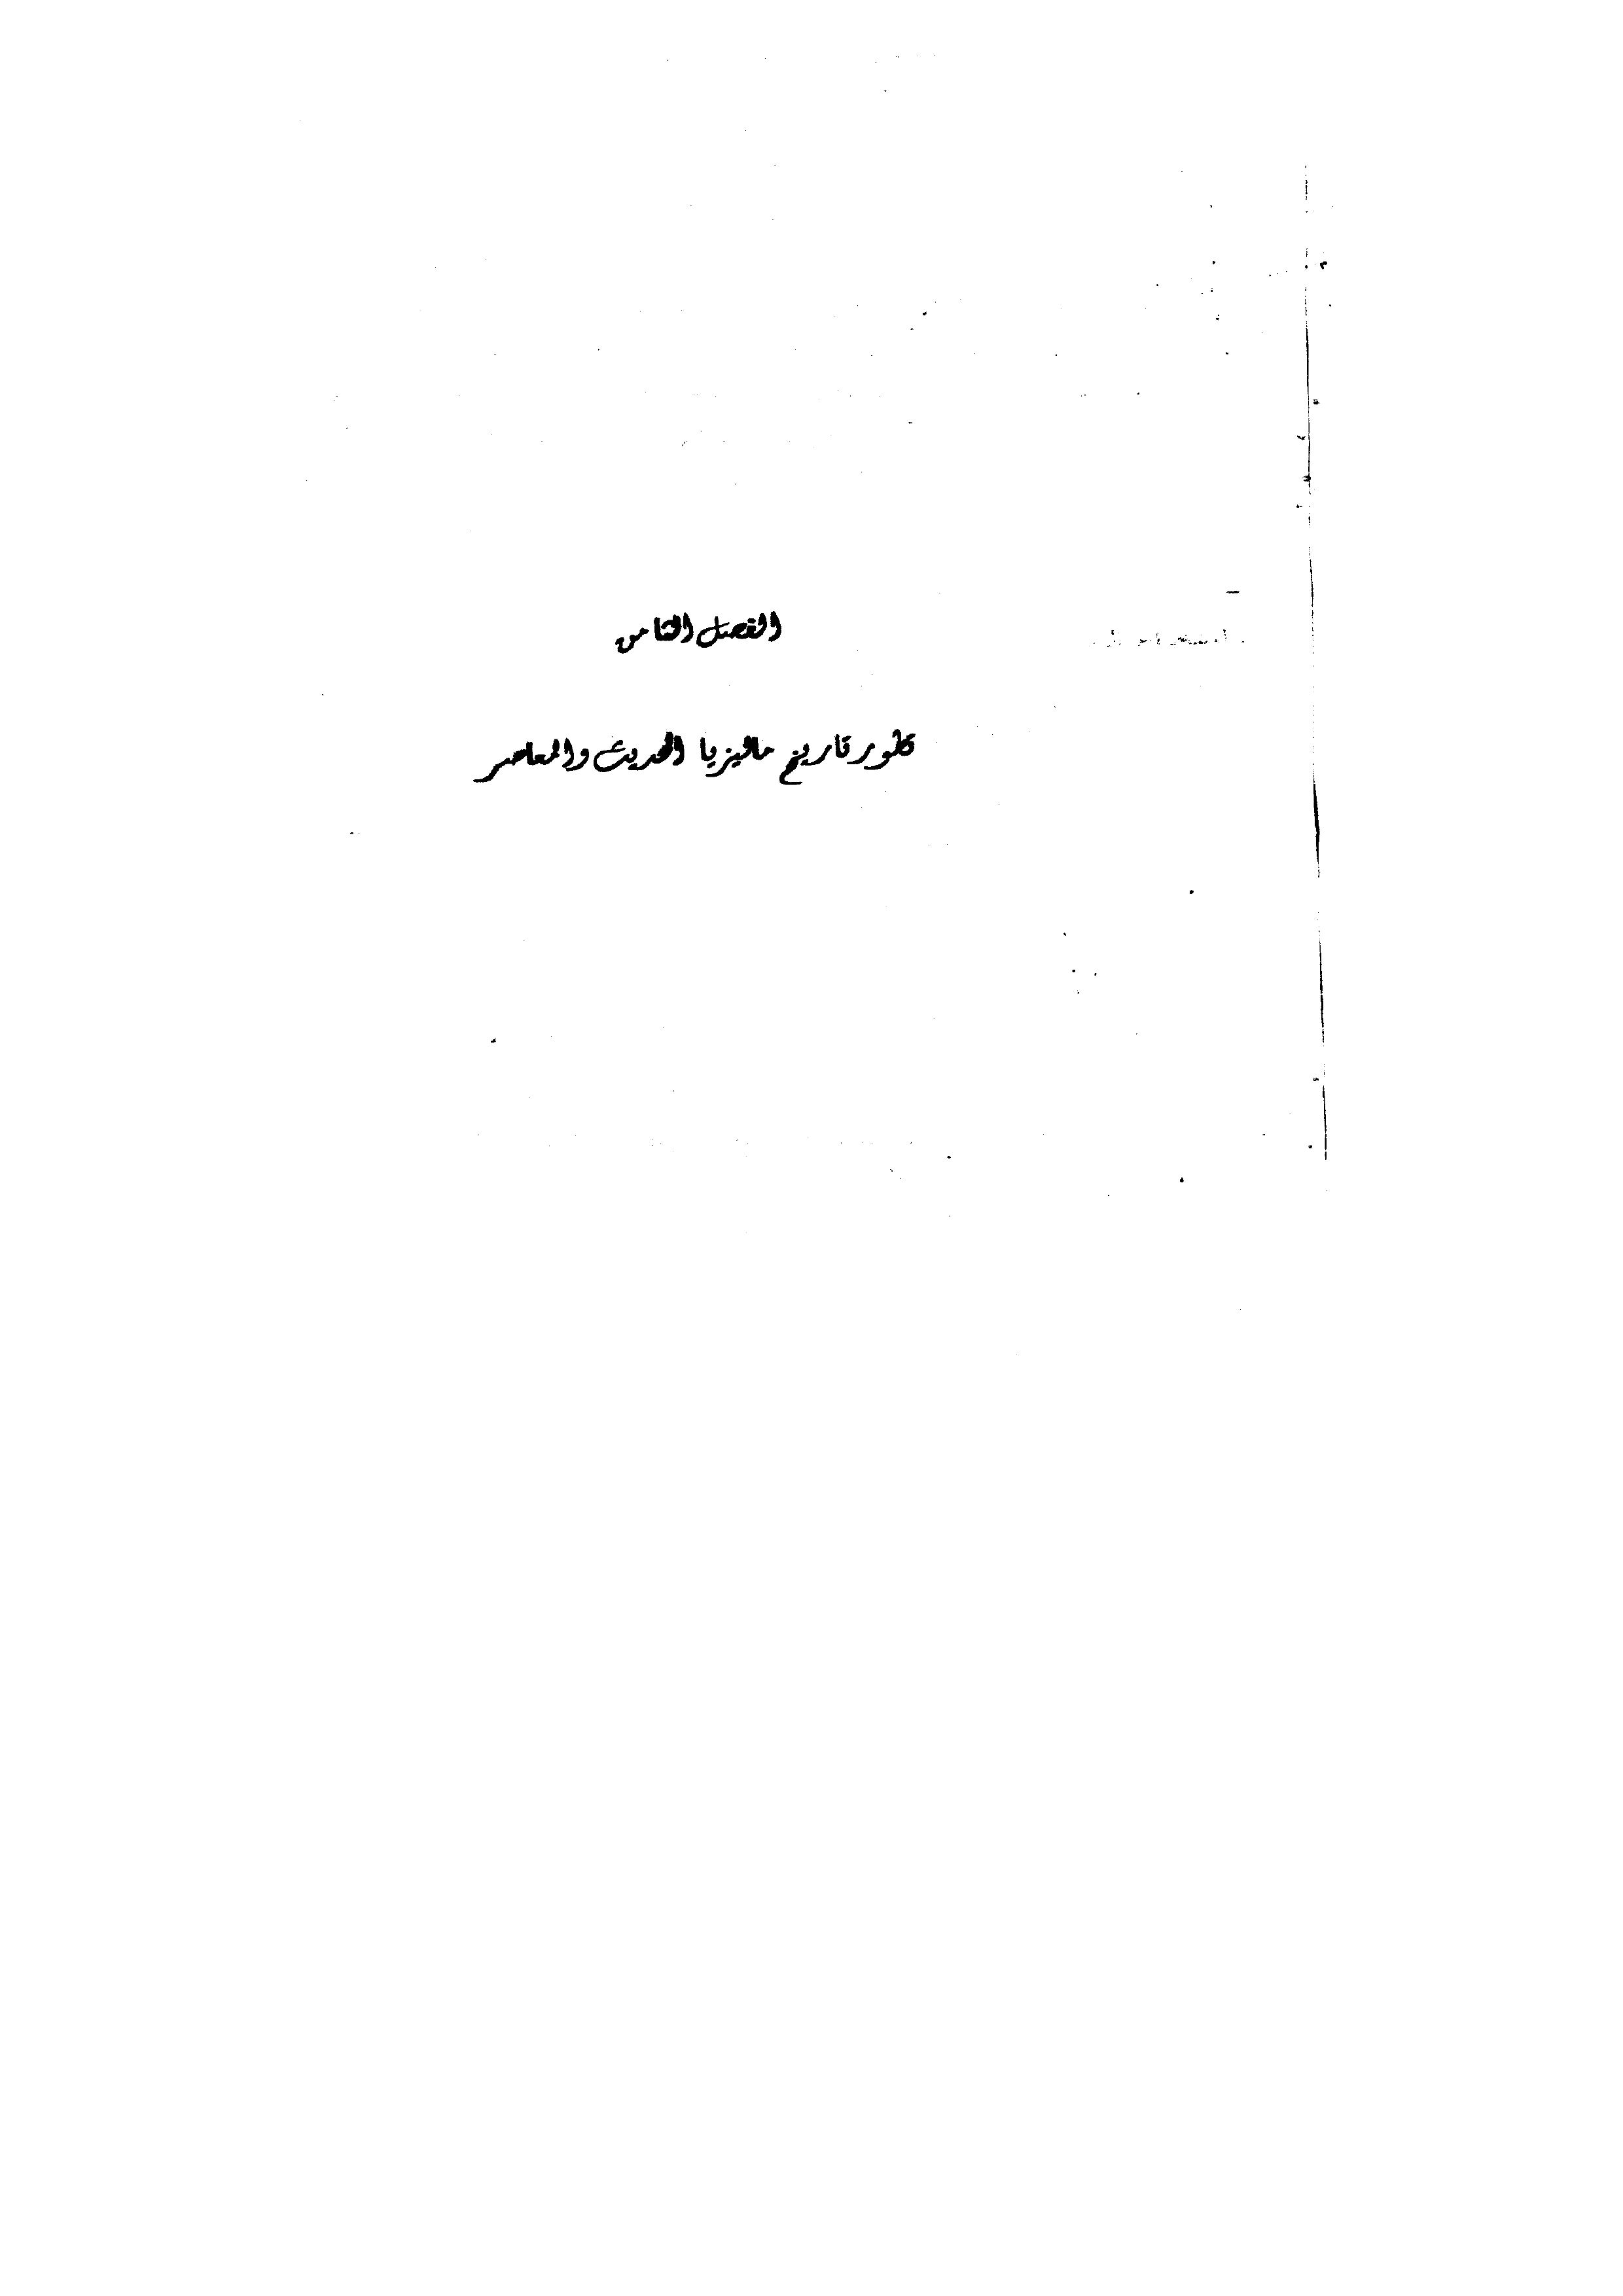 الفصل الثامن
تطور تاريخ ماليزيا الحديث والمعاصر